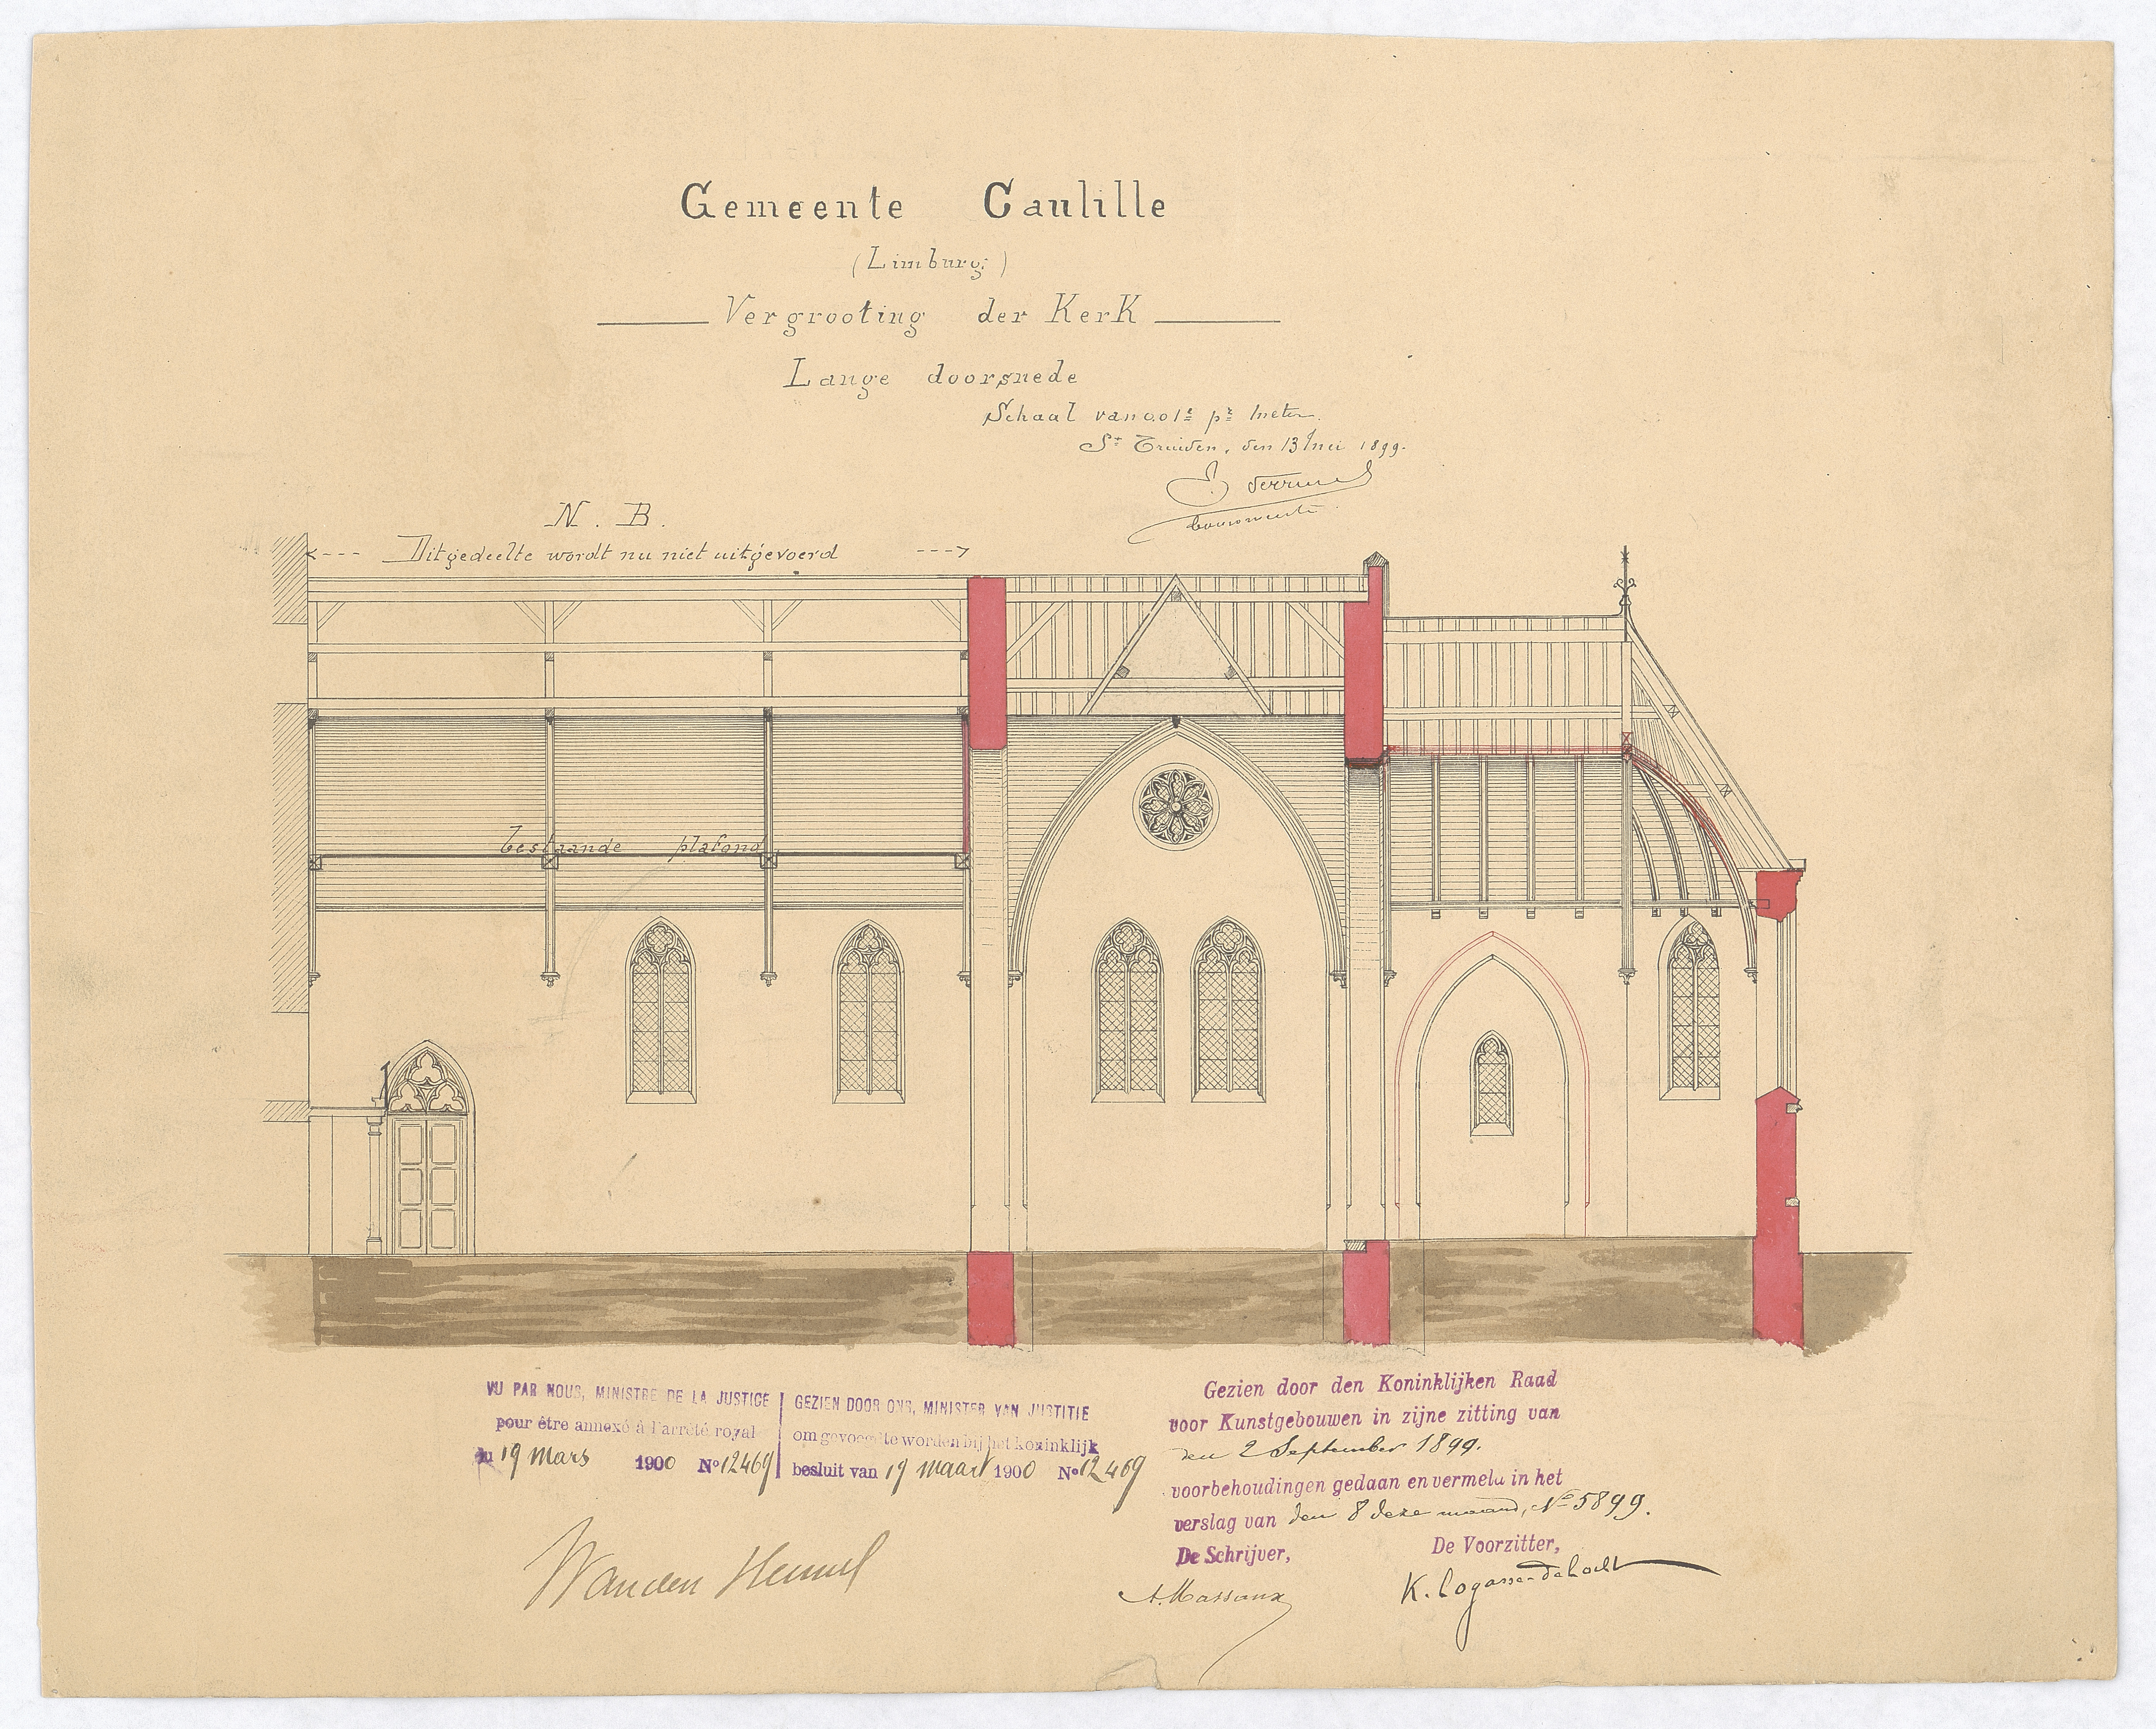 Gemeente Caulille
(Limburg)
Vergrooting der Kerk
Lange doorsnede
Schaal van 0.01c pr meter.
St Truiden, den 13 mei 1899.
N. B.
Dit gedeelte wordt nu niet uitgevoerd
bestaande plafond
VU PAR NOUS, MINISTRE DE LA JUSTICE
pour être annexé à l'arrêté royal
du 19 mars 1900 No 12469
GEZIEN DOOR ONS, MINISTER VAN JUSTITIE
om gevoegd te worden bij het koninklijk
besluit van 19 maart 1900 No 12469
Gezien door den Koninklijken Raad
voor Kunstgebouwen in zijne zitting van
den 2 September 1899.
voorbehoudingen gedaan en vermeld in het
verslag van den 8 deze maand, No 5899.
De Schrijver,
De Voorzitter,
A. Massaux